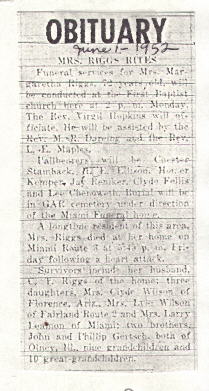 OBITUARY
June 1 - 1952
MRS. RIGGS RITES
Funeral services for Mrs. Mar-
garetha Riggs, 72 years old, will
be conducted at the First Baptist
church here at 2 p. m. Monday.
The Rev. Virgil Hopkins will of-
ficiate. He will be assisted by the
Rev. M. R. and the Rev.
L. E. Maples.
Pallbearers will be Chester
Stamback, E. Ellison, Homer
Kemper, Jay Eeniker, Clyde Fellis
and Lee Chenoweth. Burial will be
in GAR cemetery under direction
of the Miami Funeral home.
A longtime resident of this area,
Mrs. Riggs died at her home on
Miami Route 3 at p. m. Fri-
day following a heart attack.
Survivors include her husband,
C. E. Riggs of the home; three
daughters, Mrs. Clyde Wise of
Florence, Ariz., Mrs. Lyle Wilson
of Fairland Route 2 and Mrs. Larry
of Miami; two brothers,
John and Phillip Gertsch, both of
Olney, Ill., nine grandchildren and
10 great-grandchildren.